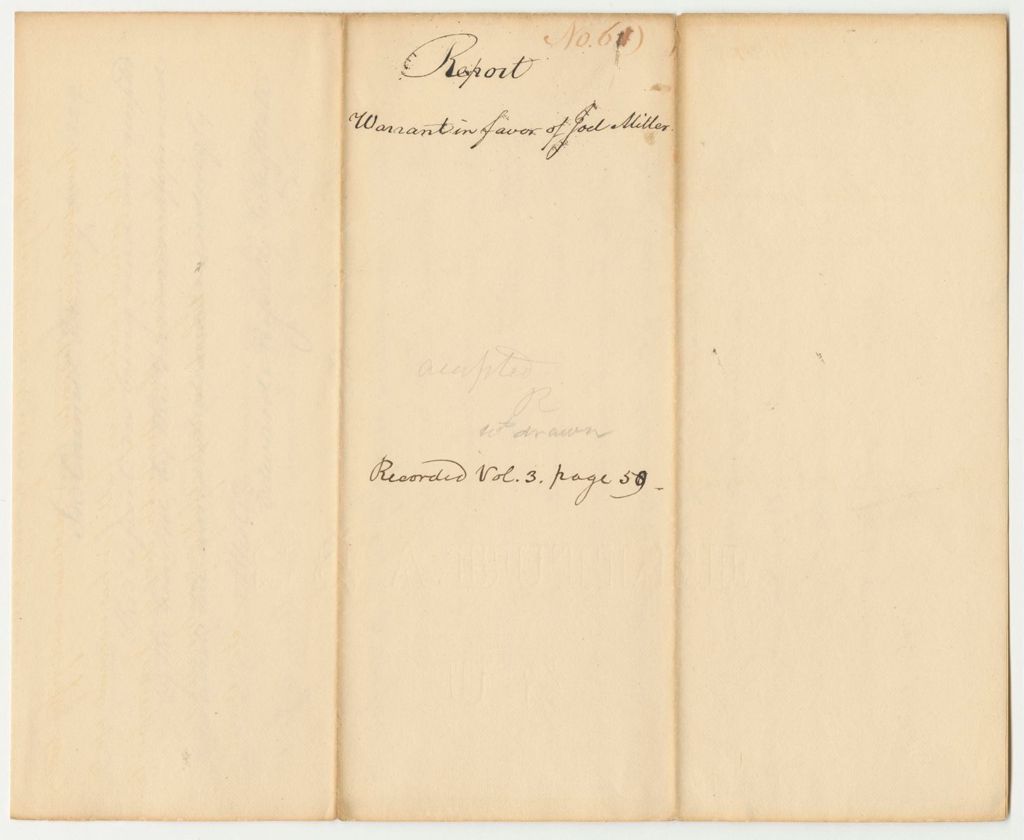 No. 61)
Report
Warrant in favor of Joel Miller.
accepted
R
wt drawn
Recorded Vol. 3. page 59